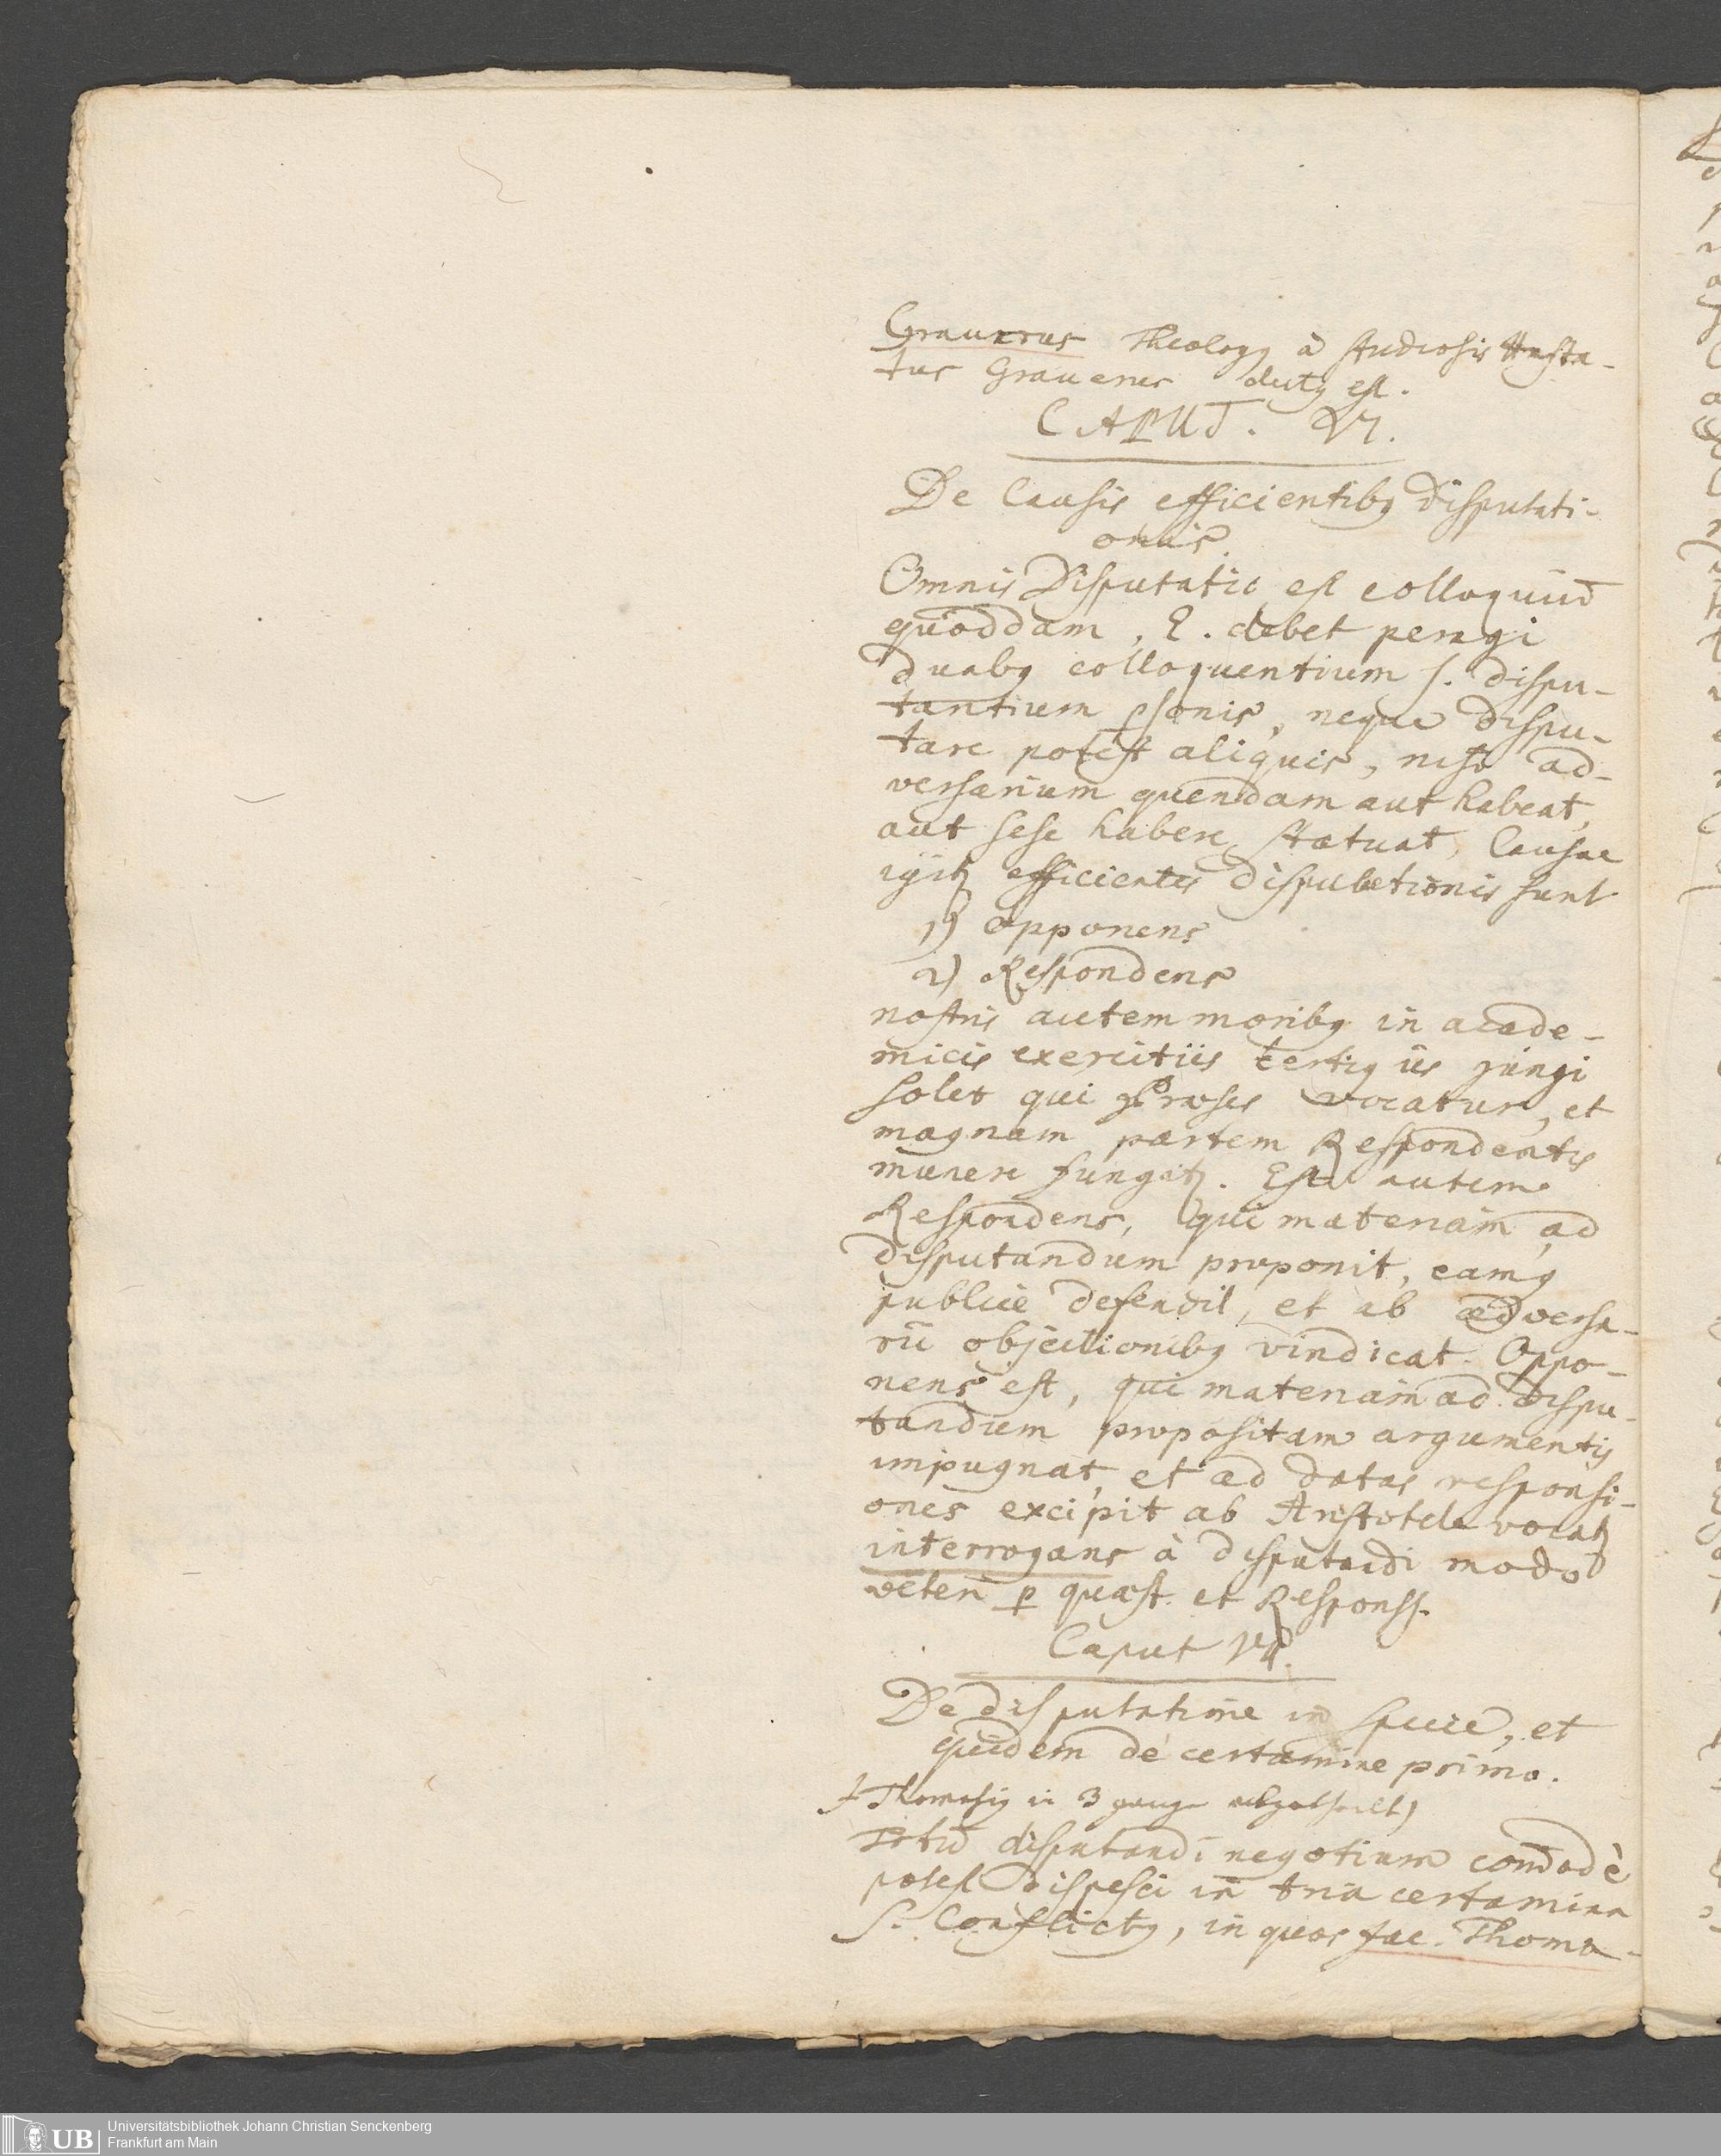 Graurrus Theologꝰ à studiosis
tus Grauerus dictꝰ est.
CAPUT. VI.
De Causis efficientibꝰ disputati-
onis.
Omnis Disputatio est colloquiū
quoddam, E. debet peragi
duabꝰ colloquentium s. dispu-
tantium psonis, neque dispu-
tare potest aliquis, nisi ad-
versarium quendam aut habeat,
aut sese habere statuat, Causae
igitꝛ efficientes disputationis sunt
1) opponens
2) Respondens
nostris autem moribꝰ in acade-
micis exercitiis tertiꝰ iis jungi
solet qui Præses vocatur, et
magnam partem Respondentis
munere fungitꝛ. Est autem
Respondens, qui materiam ad
disputandum proponit, eamqꝫ
publicè defendit, et ab adversa-
rii objectionibꝰ vindicat. Oppo-
nens est, qui materiam ad dispu-
tandum propositam argumentis
impugnat, et ad datas responsi-
ones excipit ab Aristotele vocatꝛ
interrogans à disputandi modo
veteri ꝑ quæst. et Responss.
Caput VII.
De disputatione in specie, et
quidem de certamine primo.
Thomasiꝰ in 3 gänge abgetheilt)
disputandi negotium com̄odè
potest dispesci in tria certamina
s. Conflictꝰ, in quos Jac. Thoma-
Universitätsbibliothek Johann Christian Senckenberg
Frankfurt am Main
UB